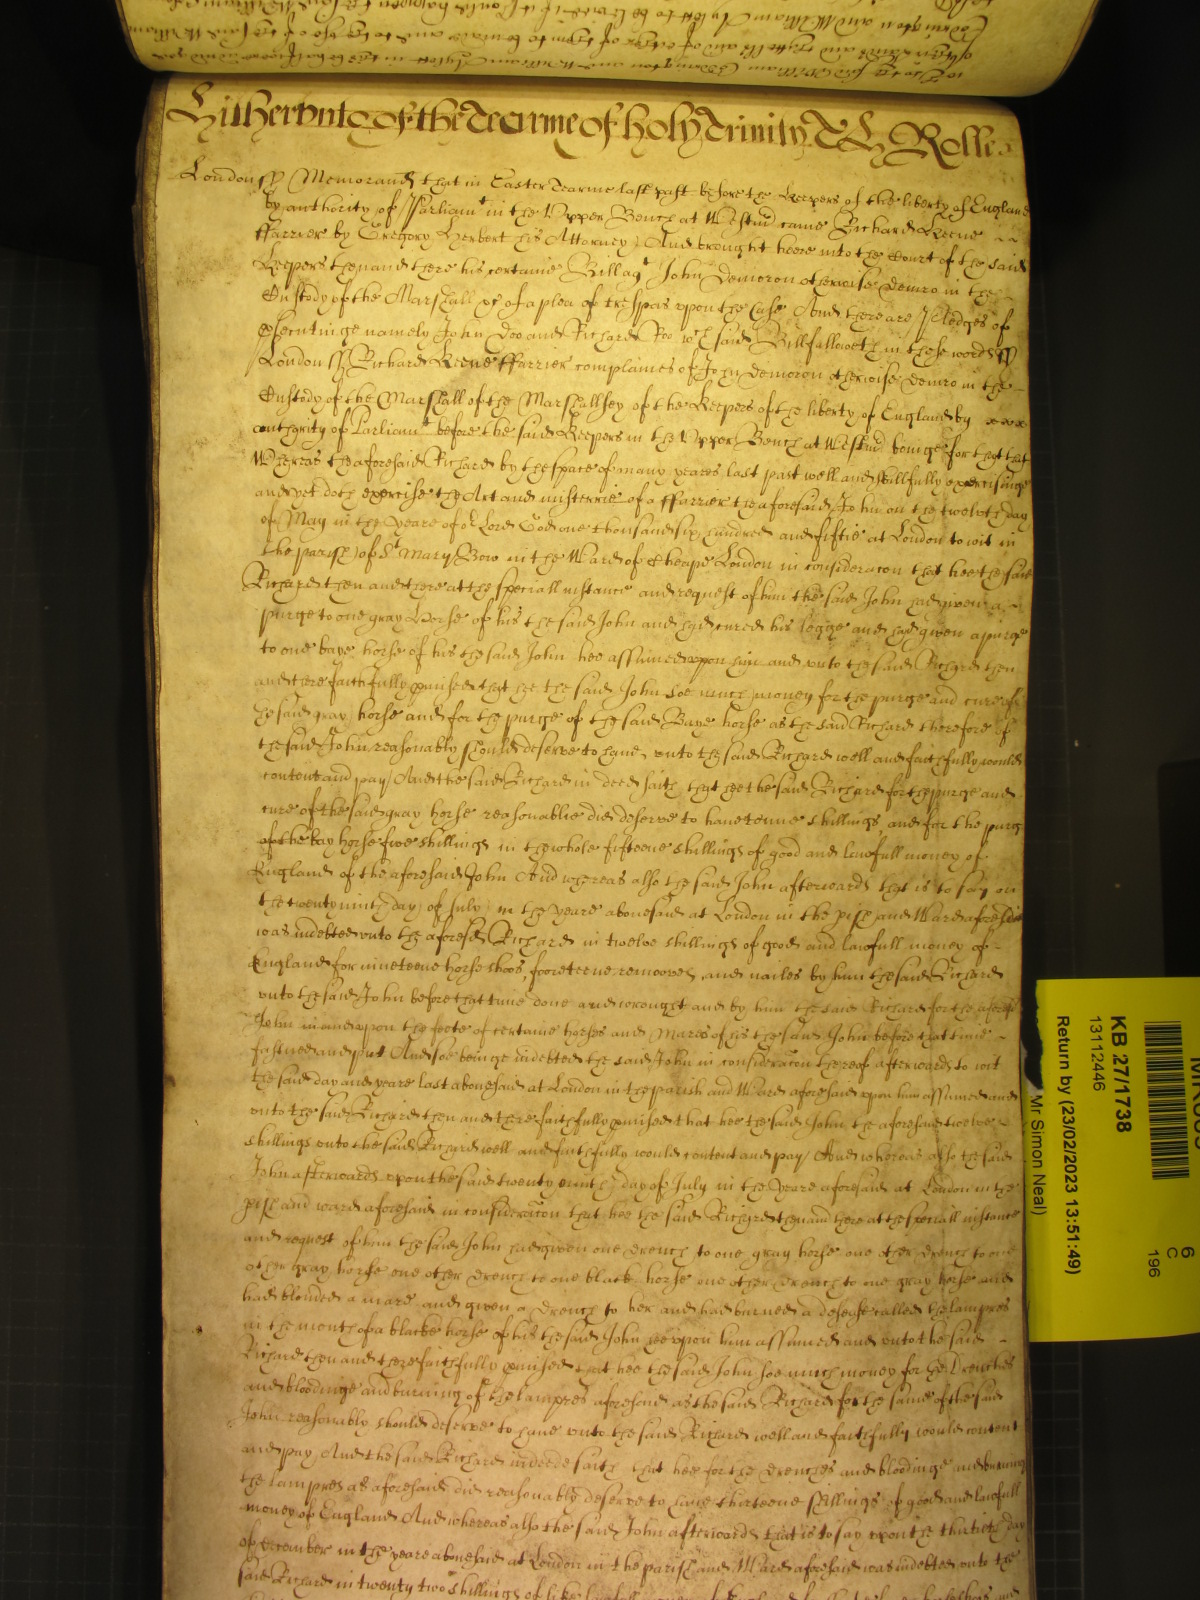 Hitherunto of the Tearme of holy Trinity T & Rolle
London ss Memorand that in Easter Tearme last past before the Keepers of the liberty of England
by authority of Parliamt in the Upper Bench at Westmr came Richard Keene
ffarrier by Gregory Herbert his Attorney And brought heere into the Court of the said
Keepers then and there his certaine Bill agt John Demron otherwise Demro in the
Custody of the Marshall &c of a plea of trespas upon the Case And there are Pledges of
prosecutinge namely John Doo and Richard Roo wch said Bill followeth in these words ss
London ss Richard Keene ffarrier complaines of John Demron otherwise Demro in the
Custody of the Marshall of the Marshallsey of the Keepers of the liberty of England by
authority of Parliamt before the said Keepers in the Upper Bench at Westmr beinge for that that
Whereas the aforesaid Richard by the space of many yeares last past well and skillfully exercisinge
and yet doth exercise the Art and misterrie of a ffarrier the aforesaid John on the twelveth day
of May in the yeare of or Lord God one thousand six hundred and fiftie at London to wit in
the parish of St Mary Bow in the Ward of Cheape London in consideracon that hee the said
Richard then and there at the speciall instance and request of him the said John had given a
purge to one gray Horse of his the said John and had cured his legge and had given a purge
to one baye horse of his the said John hee assumed upon him and unto the said Richard then
and there faithfully pmised that hee the said John soe much money for the purge and cure of
the said gray horse and for the purge of the said Baye horse as the said Richard therefore of
the said John reasonably should deserve to have unto the said Richard well and faithfully would
content and pay And the said Richard in deed saith that hee the said Richard for the purge and
cure of the said gray horse reasonablie did deserve to have tenne shillings and for the purge
of the bay horse five shillings in the whole fifteene shillings of good and lawfull money of
England of the aforesaid John And whereas also the said John afterwards that is to say on
the twenty ninth day of July in the yeare abovesaid at London in the pish and Ward aforesaid
was indebted unto the aforesd Richard in twelve shillings of good and lawfull money of
England for nineteene horse shooes, fowreteene removes and nailes by him the said Richard
unto the said John before that time done and wrought and by him the said Richard for the aforesd
John in and upon the feete of certaine horses and Mares of his the said John before that time
fastned and put And soe beinge indebted the said John in consideracon thereof afterwards to wit
the said day and yeare last abovesaid at London in the parish and Ward aforesaid upon him assumed and
unto the said Richard then and there faithfully pmised that hee the said John the aforesaid twelve
shillings unto the said Richard well and faithfully would content and pay And whereas also the said
John afterwards upon the said twenty ninth day of July in the Yeare aforesaid at London in the
pish and ward aforesaid in consideracon that hee the said Richard then and there at the speciall instance
and request of him the said John had given one drench to one gray horse one other drench to one
other gray horse one other drench to one black horse one other drench to one gray horse and
had blouded a mare and given a drench to her and had burned a disease called the lampres
in the mouth of a blacke horse of his the said John hee upon him assumed and unto the said
Richard then and there faithfully pmised that hee the said John soe much money for the Drenches
and bloodinge and burning of the lampres aforesaid as the said Richard for the same of the said
John reasonably should deserve to have unto the said Richard well and faithfully would content
and pay And the said Richard in deede saith that hee for the drenches and bloodinge and burning
the lampres as aforesaid did reasonably deserve to have thirteene shillings of good and lawfull
money of England And whereas also the said John afterwards that is to say upon the thirtith day
of December in the yeare abovesaid at London in the parish and Ward aforesaid was indebted unto the
said Richard in twenty two shillings of like lawfull money
KB 27/1738
13112446
Return by (23/02/2023 13:51:49)
Mr Simon Neal)
6
C
196